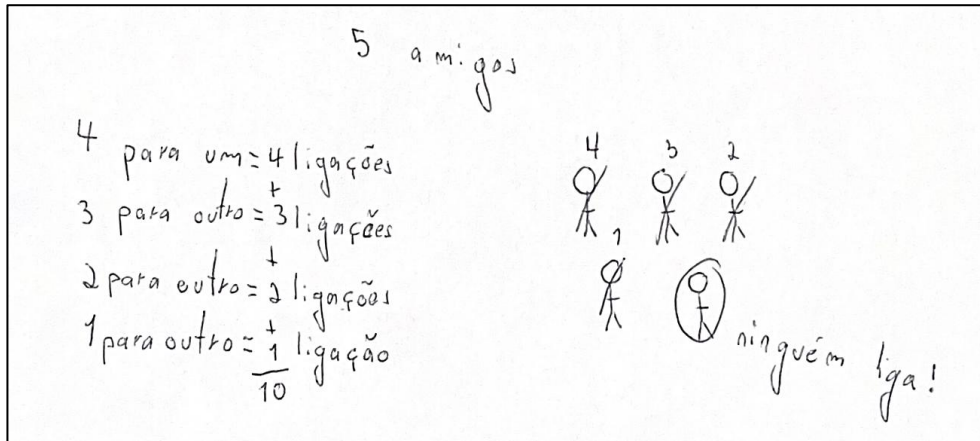 5 amigos
4 para um = 4 ligações
+
3 para outro = 3 ligações
+
2 para outro = 2 ligações
+
1 para outro = 1 ligação
10
4 3 2
1
ninguém liga!